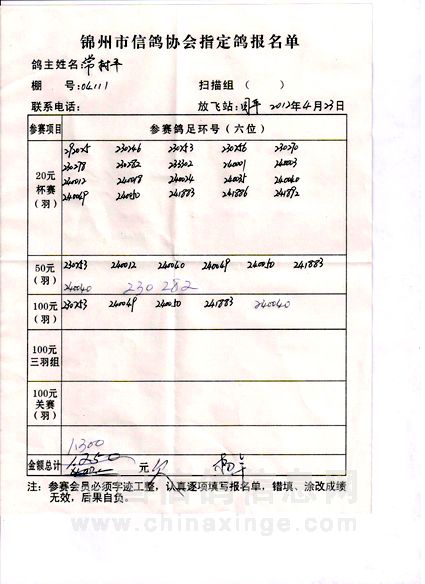 锦州市信鸽协会指定鸽报名单
鸽主姓名:常树平
棚 号:04111 扫描组 ( )
联系电话: 放飞站:昌平 2012年4月23日
参赛项目 参赛鸽足环号(六位)
20元杯赛(羽)
230246 230253 230256 230270
230278 230282 233302 240001 240003
240012 240018 240024 240035 240040
240049 240050 241883 241886 241892
50元(羽) 230253 240012 240040 240049 240050 241883
240040 230282
100元(羽) 230253 240049 240050 241883 240040
100元三羽组
100元关赛(羽)
1300
金额总计 1250 元
注: 参赛会员必须字迹工整,认真逐项填写报名单,错填、涂改成绩
无效,后果自负。
中国信鸽信息网
www.chinaxinge.com